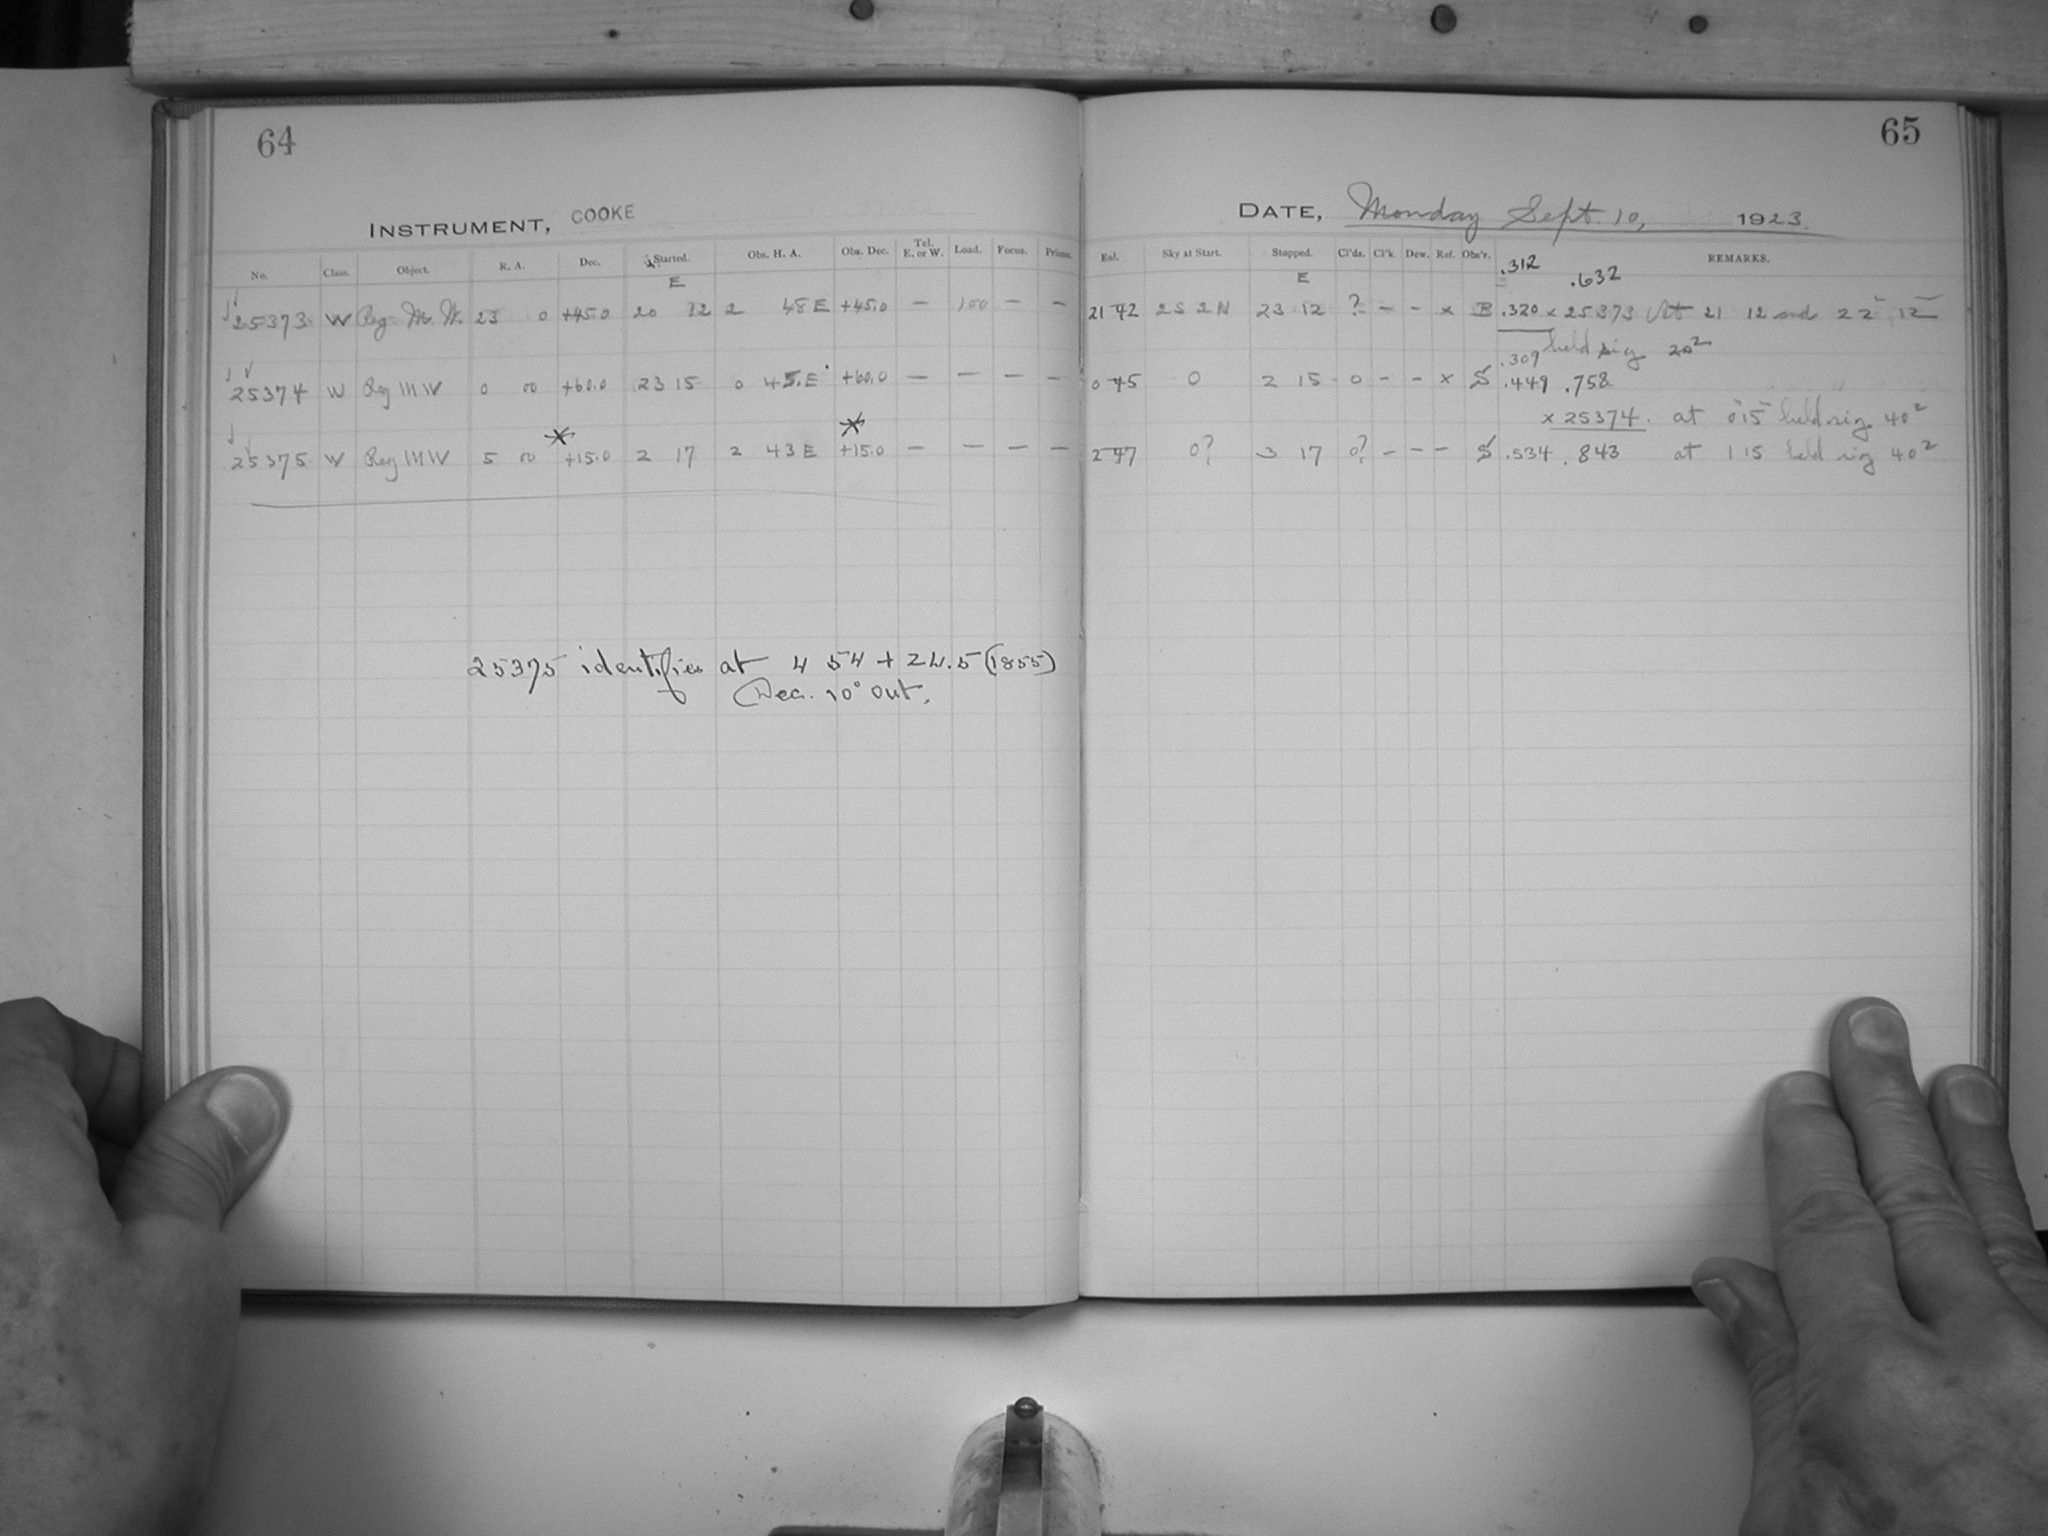 64
INSTRUMENT, COOKE
No. Class. Object. R. A. Dec. Started. Obs. H. A. Obs. Dec. Tel. E. or W. Load. Focus. Prism.
E
25373 W Reg. M. W. 23 0 +45.0 20 12 2 48 E +45.0 — 100 — —
25374 W Reg M W 0 00 +60.0 23 15 0 45. E +60.0 — — — —
25375 W Reg M W 5 00 +15.0 2 17 2 43 E +15.0 — — — —
25375 identifies at 4 54 + 24.5 (1855)
(Dec. 10° out.
65
DATE, Monday Sept. 10, 1923.
Sky at Start. Stopped. Cl'ds. Cl'k Dew. Ref. Obs'r. REMARKS.
E .312 .632
21 42 2S 2N 23 12 ? - - x B .320 x 25373 At 21 12 and 22 12
.309 held rig 20²
0 45 0 2 15 0 - - x S .449 .758
x 25374. at 0 15 held rig 40²
2 47 0? 3 17 0? - - - S .534 .843 at 1 15 held rig 40²